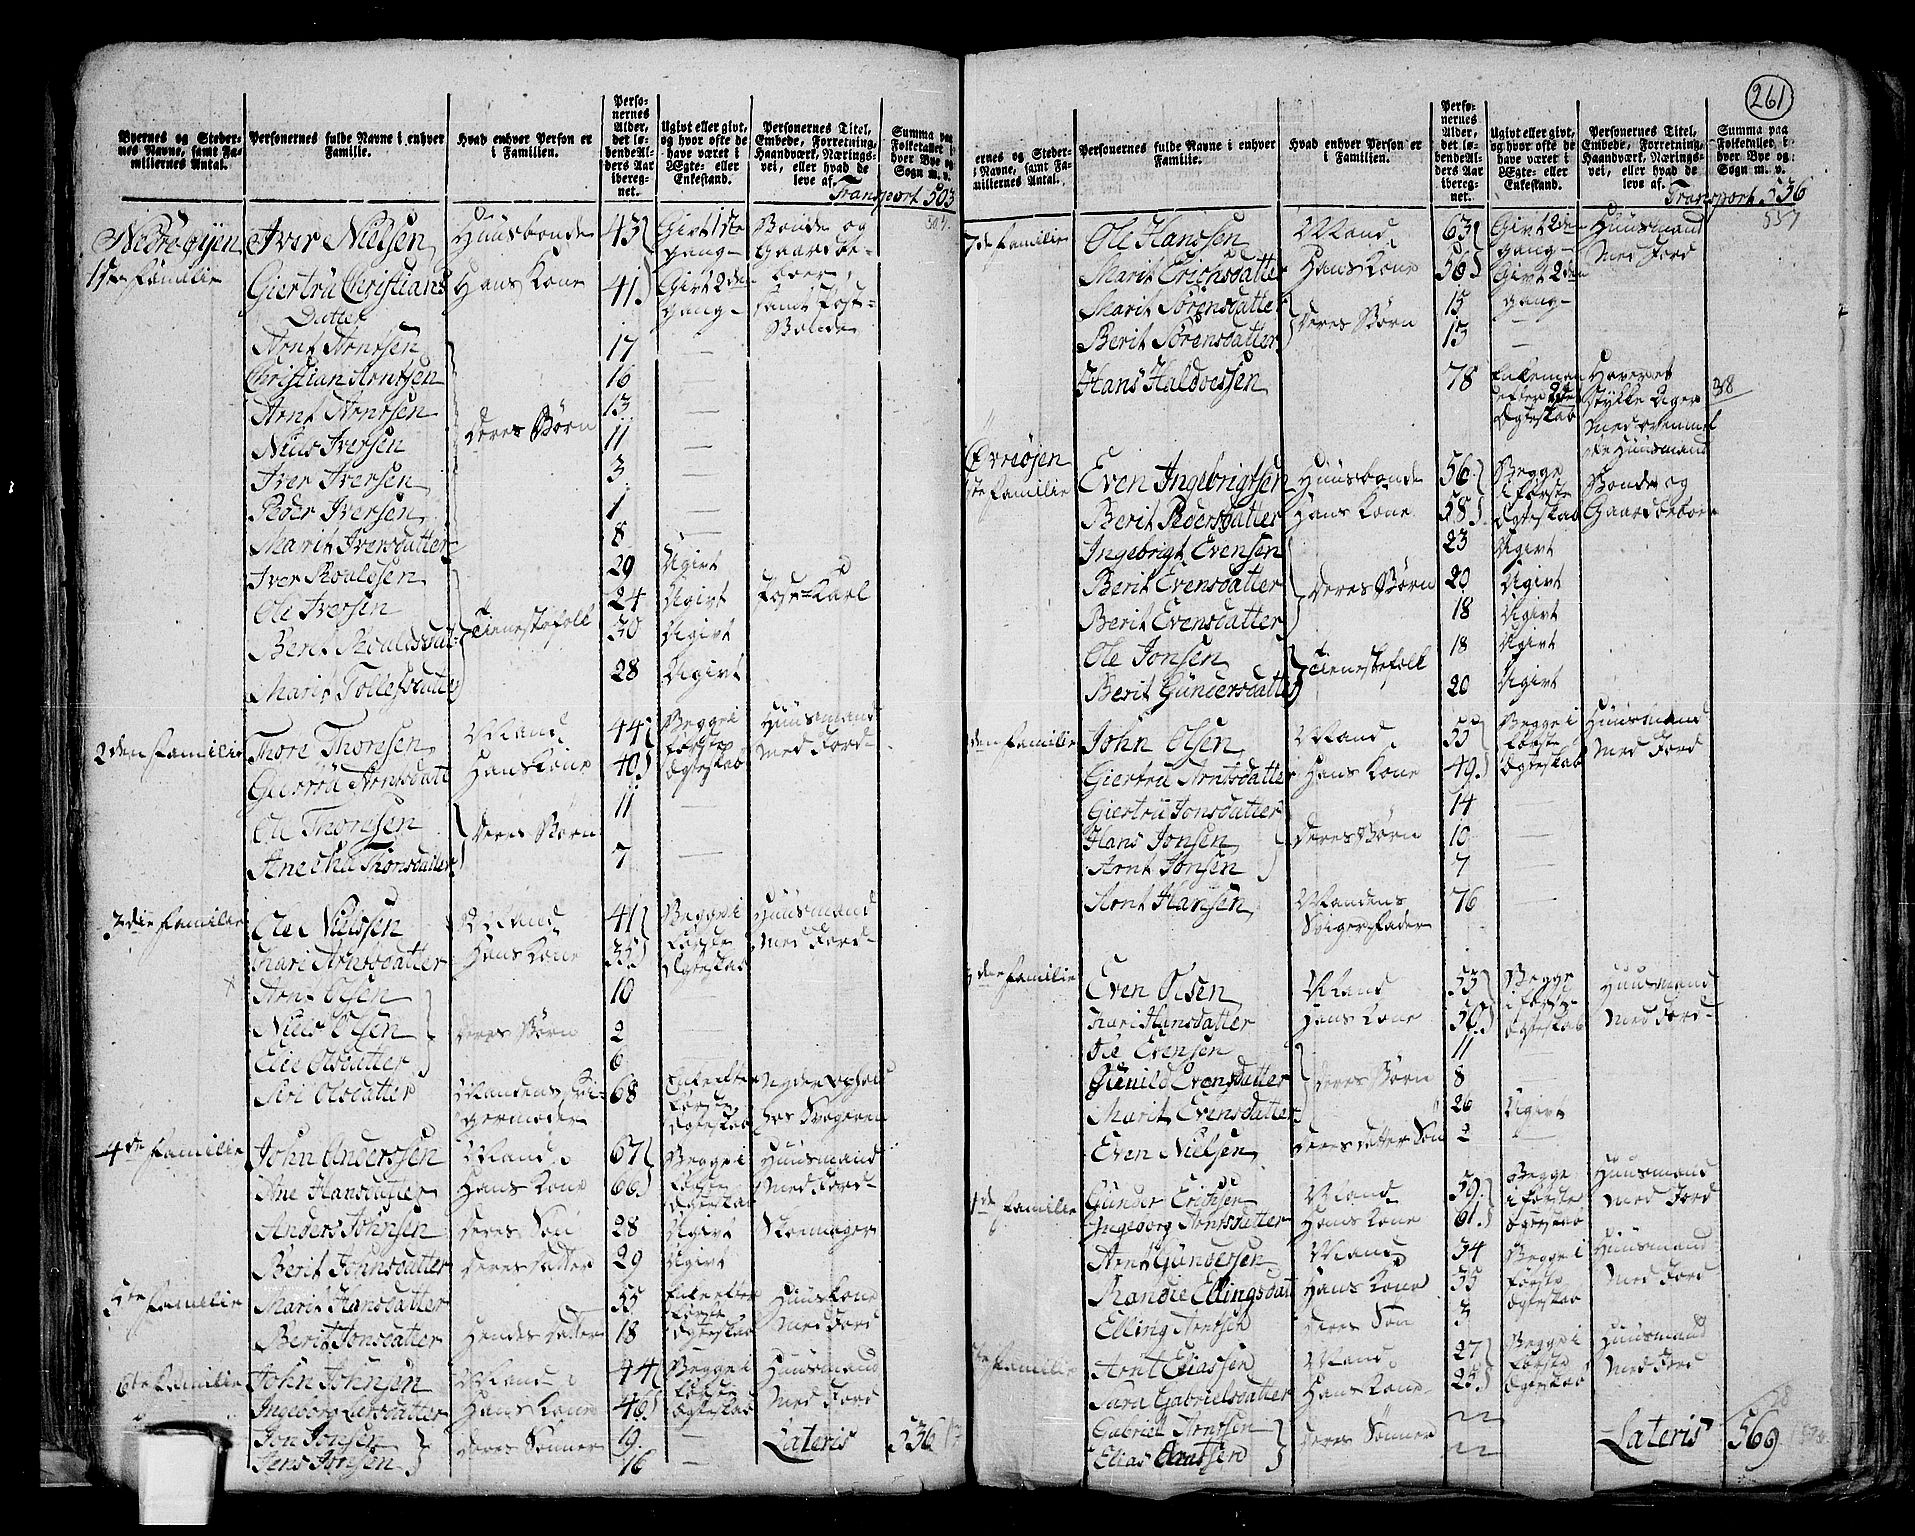 261
Byernes og Stedernes Navne, samt Familiernes Antal. | Personernes fulde Navne i enhver Familie. | Hvad enhver Person er i Familien. | Personernes Alder, det løbende Alders Aar iberegnet. | Ugivt eller givt, og hvor ofte de have været i Ægte- eller Enkestand. | Personernes Titel, Embede, Forretning, Haandværk, Næringsvei, eller hvad de leve af. | Summa paa Folketallet i hver Bye og Sogn m. v.
Transport 503
Nedreøyen | Iver Nielsen | Huusbonde | 43 | Givt 1ste gang | Bonde og Gaardbeboer, samt Post-Bonde
1ste Familie | Giertru Christians Datter | Hans Kone | 41 | Givt 2den gang
Arnt Arntsen | 17 | —
Christian Arntsen | 16 | —
Arnt Arntsen | 13 | —
Niels Iversen | Deres Børn | 11 | —
Iver Iversen | 3 | —
Peder Iversen | 1 | —
Marit Iversdatter | 8 | —
Iver Roaldsen | 29 | Ugivt
Ole Iversen | Tienestefolk | 24 | Ugivt | Post-Karl
Berit Roaldsdat- | 30 | Ugivt
Marit Tollefsdatter | 28 | Ugivt
2den Familie | Thore Thoresen | Mand | 44 | Begge i første Ægteskab | Huusmand med Jord
Giertru Arntsdatt | Hans Kone | 40
Ole Thoresen | Deres Børn | 11 | —
Thorsdatter | 7 | —
3die Familie | Ole Nielsen | Mand | 41 | Begge i første Ægteskab | Huusmand med Jord
Kari Arntsdatter | Hans Kone | 35
Arnt Olsen | 10 | —
Niels Olsen | Deres Børn | 2 | —
Elie Olsdatter | 6
Siri Olsdatter | Mandens Svigermoder | 68 | Enke efter første Ægteskab | Nyder ophold hos Svogeren
4de Familie | John Anderssen | Mand | 67 | Begge i første Ægteskab | Huusmand med Jord
Ane Hansdatter | Hans Kone | 66
Anders Johnsen | Deres Søn | 28 | Ugivt | Skoemager
Berit Johnsdatter | Deres Datter | 29 | Ugivt
5te Familie | Marit Hansdatter | 55 | Enke efter første Ægteskab | Huuskone med Jord
Berit Jonsdatter | Hendes Datter | 18
6te Familie | John Johnsen | Mand | 44 | Begge i første Ægteskab | Huusmand med Jord
Ingeborg Larsdatter | Hans Kone | 46
Jon Jonsen | Deres Sønner | 19 | —
Jens Jonsen | 16 | —
Lateris 536
ernes og Stedernes Navne, samt Familiernes Antal. | Personernes fulde Navne i enhver Familie. | Hvad enhver Person er i Familien. | Personernes Alder, det løbende Alders Aar iberegnet. | Ugivt eller givt, og hvor ofte de have været i Ægte- eller Enkestand. | Personernes Titel, Embede, Forretning, Haandværk, Næringsvei, eller hvad de leve af. | Summa paa Folketallet i hver Bye og Sogn m. v.
Transport 536
537
7de Familie | Ole Hanssen | Mand | 63 | Givt 2den gang | Huusmand med Jord
Marit Erichsdatter | Hans Kone | 56 | Givt 2den gang
Marit Sørensdatter | Deres Børn | 15 | —
Berit Sørensdatter | 13 | —
Hans Haldorssen | 78 | Enkemand efter 2det Ægteskab | Haver et stykke Ager med ovenmel de Huusmand | 38
Øvreøjen
1ste Familie | Even Ingebrigtsen | Huusbonde | 56 | Begge i første Ægteskab | Bonde og Gaardbeboer
Berit Pedersdatter | Hans Kone | 58
Ingebrigt Evensen | 23 | Ugivt
Berit Evensdatter | Deres Børn | 20 | Ugivt
Berit Evensdatter | 18 | Ugivt
Ole Jonsen | Tienestefolk | 18 | Ugivt
Berit Gundersdatter | 20 | Ugivt
den Familie | John Olsen | Mand | 55 | Begge i første Ægteskab | Huusmand med Jord
Giertru Arntsdatter | Hans Kone | 49
Giertru Jonsdatter | 14
Hans Jonsen | Deres Børn | 10 | —
Arnt Jonsen | 7 | —
Arnt Hansen | Mandens Svigerfader | 76 | —
3die Familie | Even Olsen | Mand | 53 | Begge i første Ægteskab | Huusmand med Jord
Kari Hansdatter | Hans Kone | 50
Ole Evensen | 11 | —
Gunild Evensdatter | Deres Børn | 8 | —
Marit Evensdatter | 26 | Ugivt
Even Nielsen | Deres Datter Søn | 2 | —
4de Familie | Gunder Erichsen | Mand | 59 | Begge i første Ægteskab | Huusmand med Jord
Ingeborg Arntsdatter | Hans Kone | 61
Arnt Gundersen | Mand | 34 | Begge i første Ægteskab | Huusmand med Jord
Randie Ellingsdatt | Hans Kone | 35
Elling Arntsen | Deres Søn | 3
5te Familie | Arnt Eliassen | Mand | 27 | Begge i første Ægteskab | Huusmand med Jord
Sara Gabrielsdatter | Hans Kone | 25
Gabriel Arntsen | Deres Sønner
Elias Arntsen
Lateris 569